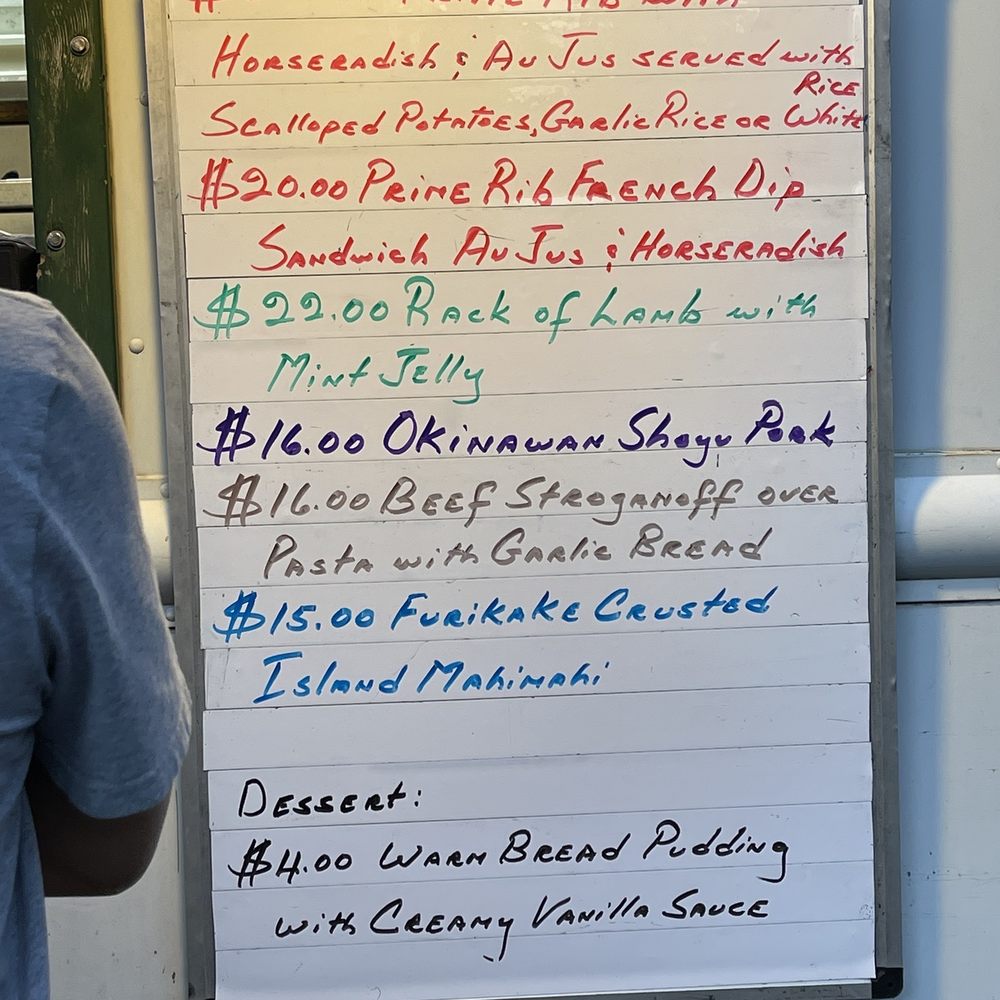 Prime Rib with
Horseradish & Au Jus served with
Rice
Scalloped Potatoes, Garlic Rice or White
$20.00 Prime Rib French Dip
Sandwich Au Jus & Horseradish
$22.00 Rack of Lamb with
Mint Jelly
$16.00 Okinawan Shoyu Pork
$16.00 Beef Stroganoff over
Pasta with Garlic Bread
$15.00 Furikake Crusted
Island Mahimahi
Dessert:
$4.00 Warm Bread Pudding
with Creamy Vanilla Sauce